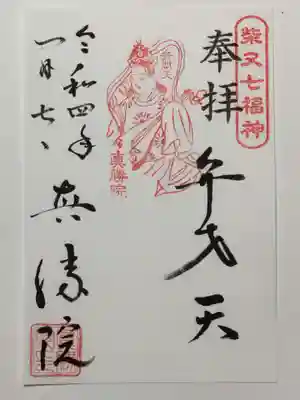 柴又七福神
奉拝
弁才天
眞勝院
令和四年
一月七日
真勝院